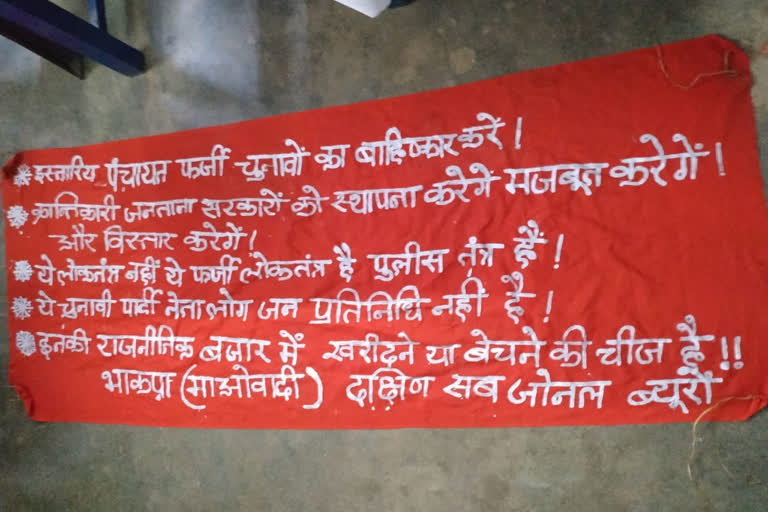 * इस्तारिय पंचायत फर्जी चुनावों का बाहिष्कार करें!
* क्रान्तिकारी जनताना सरकारों को स्थापना करेगें मजबूत करेगें!
और विस्तार करेगें!
* ये लोकतंत्र नहीं ये फर्जी लोकतंत्र है पुलीस तंत्र है!
* ये चुनावी पार्टी नेता लोग जन प्रतिनिधि नहीं है!
* इनकी राजनीतिक बजार में खरीदने या बेचने की चीज है!!
भाकपा (माओवादी) दक्षिण सब जोनल ब्यूरो